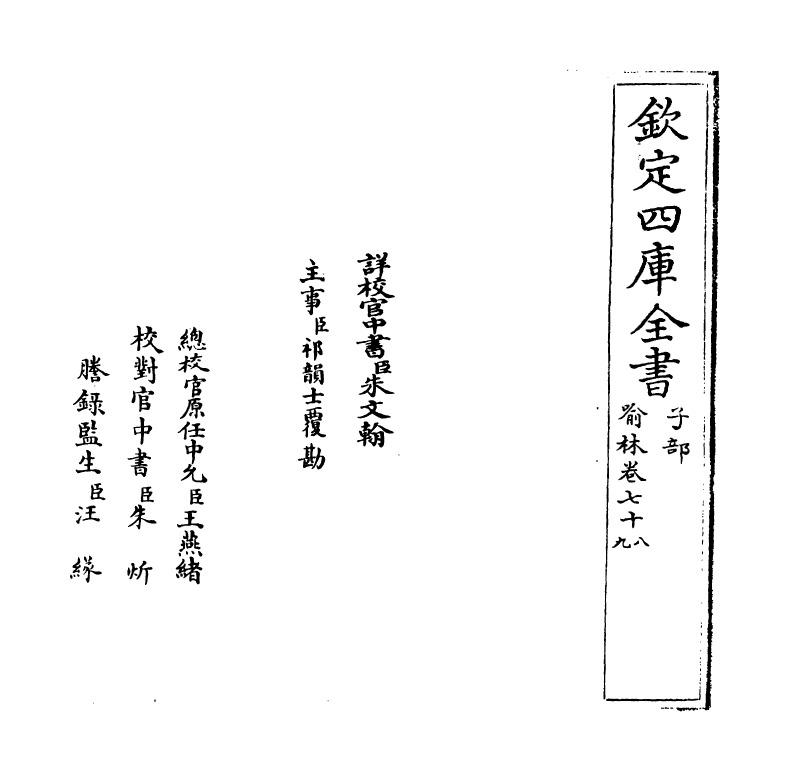 欽定四庫全書
子部
喻林卷七十八九
詳校官中書臣朱文翰
主事臣祁韻士覆勘
總校官原任中允臣王燕緒
校對官中書臣朱炘
謄錄監生臣汪緣